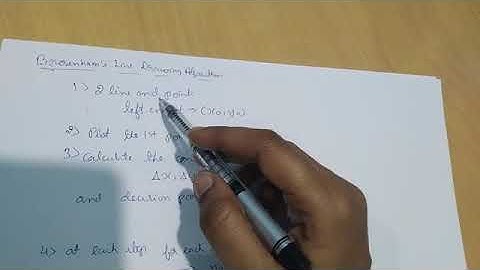 Bresenham's Line Drawing Algorithm
1) 2 line end point
left en t = (x0, y0)
2) Plot the 1st po
3) Calculate the con
Δx, Δ
and decision pa
4) at each step for each